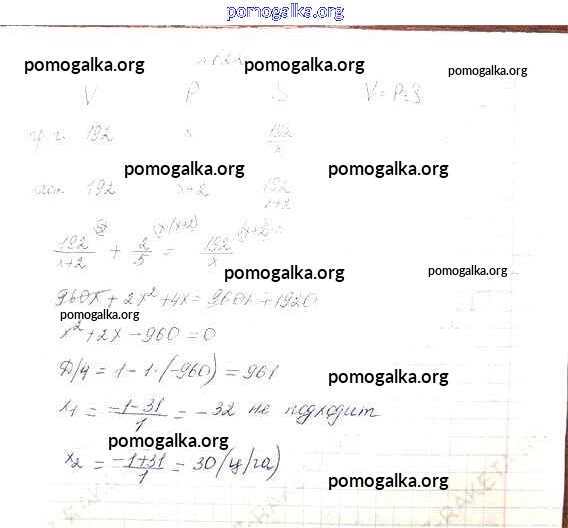 pomogalka.org
pomogalka.org pomogalka.org pomogalka.org
V P S V = P·S
192 x 192/x
pomogalka.org pomogalka.org
192 x+2 192/x+2
192/x+2 + 2/5 = 192/x
pomogalka.org pomogalka.org
960x + 2x² + 4x = 960x + 1920
pomogalka.org
x² + 2x − 960 = 0
Д/4 = 1 − 1·(−960) = 961
pomogalka.org
x₁ = −1−31/1 = −32 не подходит
pomogalka.org
x₂ = −1+31/1 = 30 (ц/га)
pomogalka.org